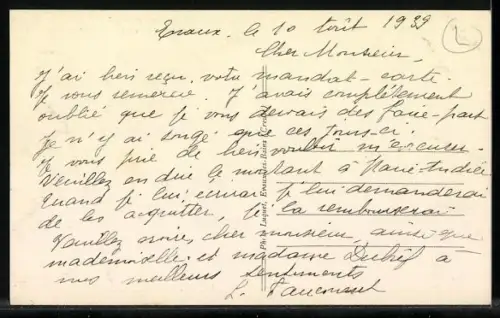 Evaux, le 10 Août 1939
Cher Monsieur,
J'ai bien reçu votre mandat-carte.
Je vous remercie. J'avais complètement
oublié que je vous devais des faire-part
Je n'y ai songé que ces jours-ci.
Je vous prie de bien vouloir m'excuser.
Veuillez en dire le montant à Marie-Andrée
Quand je lui écrirai je lui demanderai
de les acquitter, je la rembourserai
Veuillez croire, cher monsieur, ainsi que
mademoiselle et madame à
mes meilleurs sentiments
L.
Phot. Luquet, Evaux-les-Bains (Creuse)
L